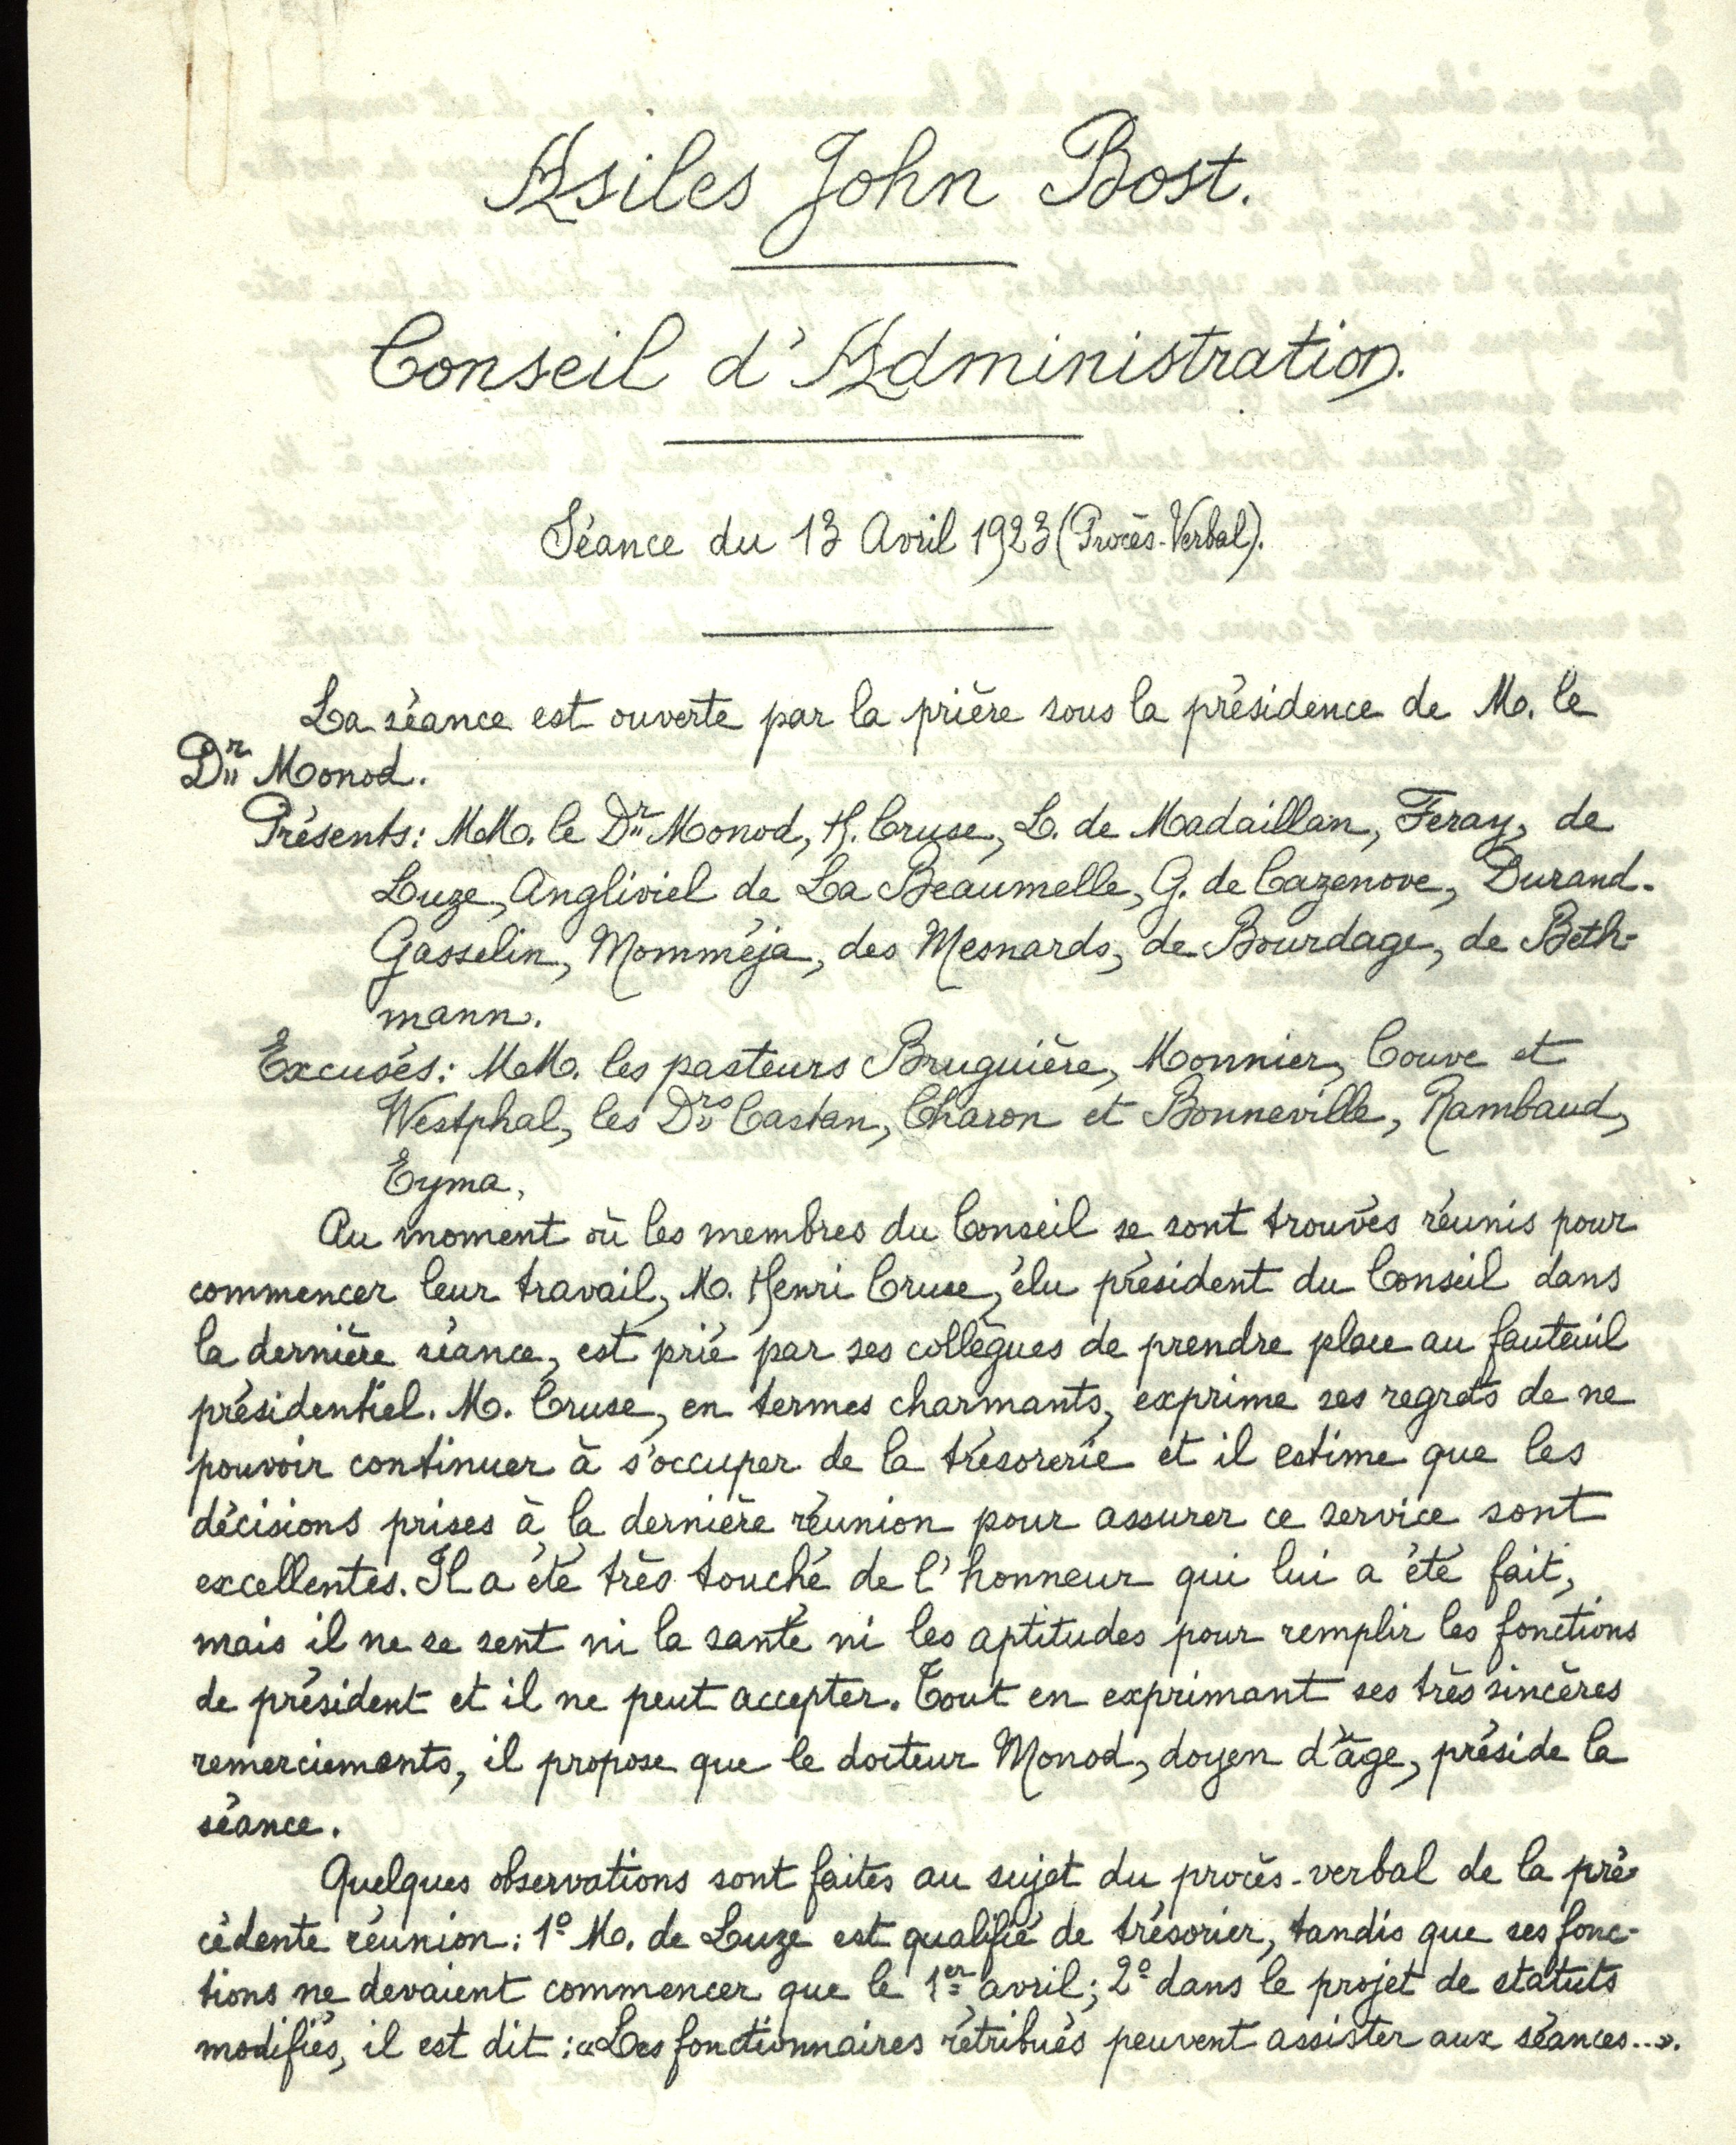 Asiles John Bost.
Conseil d'Administration.
Séance du 13 Avril 1923 (Procès-Verbal).
La séance est ouverte par la prière sous la présidence de M. le
Dr Monod.
Présents: MM. le Dr Monod, H. Cruse, L. de Madaillan, Feray, de
Luze, Angliviel de La Beaumelle, G. de Cazenove, Durand-
Gasselin, Momméja, des Mesnards, de Bourdage, de Beth-
mann.
Excusés: MM. les pasteurs Bruguière, Monnier, Couve et
Westphal, les Drs Castan, Charon et Bonneville, Rambaud,
Eyma.
Au moment où les membres du Conseil se sont trouvés réunis pour
commencer leur travail, M. Henri Cruse, élu président du Conseil dans
la dernière séance, est prié par ses collègues de prendre place au fauteuil
présidentiel. M. Cruse, en termes charmants, exprime ses regrets de ne
pouvoir continuer à s'occuper de la trésorerie et il estime que les
décisions prises à la dernière réunion pour assurer ce service sont
excellentes. Il a été très touché de l'honneur qui lui a été fait,
mais il ne se sent ni la santé ni les aptitudes pour remplir les fonctions
de président et il ne peut accepter. Tout en exprimant ses très sincères
remerciements, il propose que le docteur Monod, doyen d'âge, préside la
séance.
Quelques observations sont faites au sujet du procès-verbal de la pré-
cédente réunion: 1º M. de Luze est qualifié de trésorier, tandis que ses fonc-
tions ne devaient commencer que le 1er avril; 2º dans le projet de statuts
modifiés, il est dit: «Les fonctionnaires rétribués peuvent assister aux séances...».